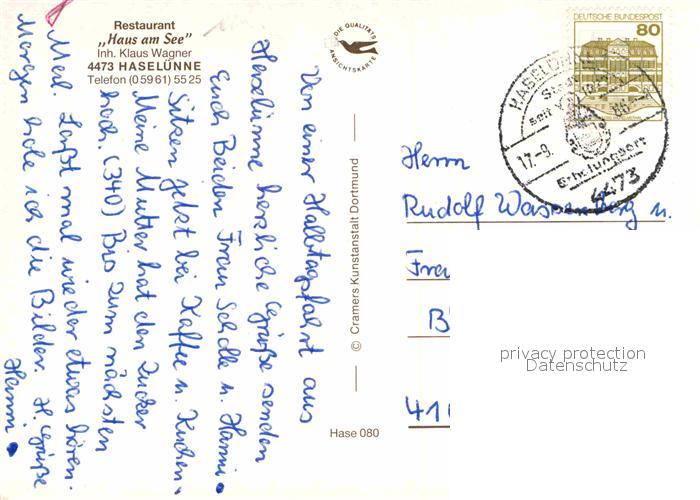 Restaurant
„Haus am See"
Inh. Klaus Wagner
4473 HASELÜNNE
Telefon (05961) 5525
DIE QUALITÄTS
ANSICHTSKARTE
DEUTSCHE BUNDESPOST
80
HASELÜNNE
Stadt
seit
17.-9.
86
Erholungsort
4473
Von einer Halbtagsfahrt aus
Haselünne herzliche Grüße senden
Euch Beiden Frau Scholle u. Hanni.
Sitzen jetzt bei Kaffee u. Kuchen.
Meine Mutter hat den Zucker
hoch. (340) Bis zum nächsten
Mal. Laßt mal wieder etwas hören.
Morgen hole ich die Bilder. H. Grüße
Hanni.
© Cramers Kunstanstalt Dortmund
Hase 080
Herrn
Rudolf u.
Fra
B
41
privacy protection
Datenschutz